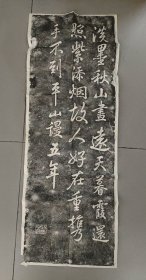 淡墨秋山畫遠天暮霞還
照紫添煙故人好在重攜
手不到平山謾五年